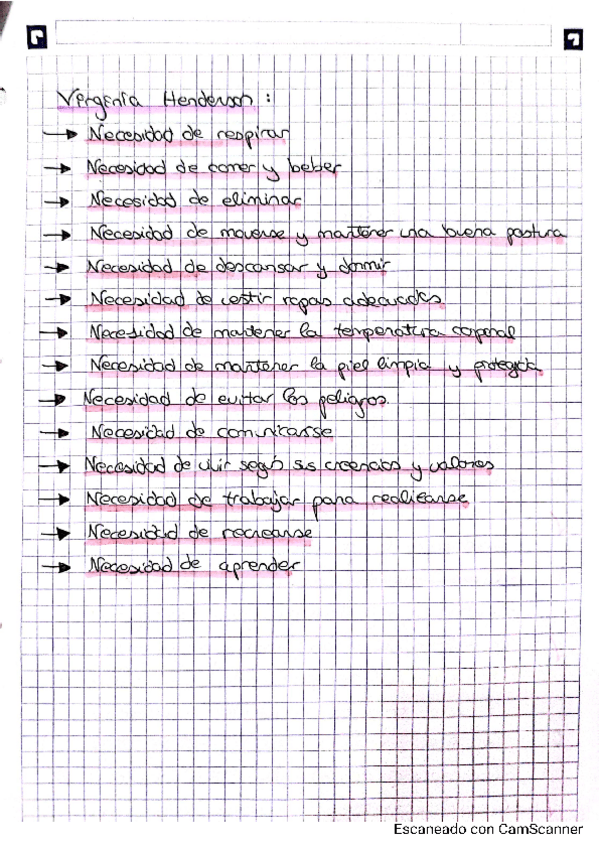 Virginia Henderson :
→ Necesidad de respirar
→ Necesidad de comer y beber
→ Necesidad de eliminar
→ Necesidad de moverse y mantener una buena postura
→ Necesidad de descansar y dormir
→ Necesidad de vestir ropas adecuadas
→ Necesidad de mantener la temperatura corporal
→ Necesidad de mantener la piel limpia y protegida
→ Necesidad de evitar los peligros
→ Necesidad de comunicarse
→ Necesidad de vivir según sus creencias y valores
→ Necesidad de trabajar para realizarse
→ Necesidad de recrearse
→ Necesidad de aprender
Escaneado con CamScanner